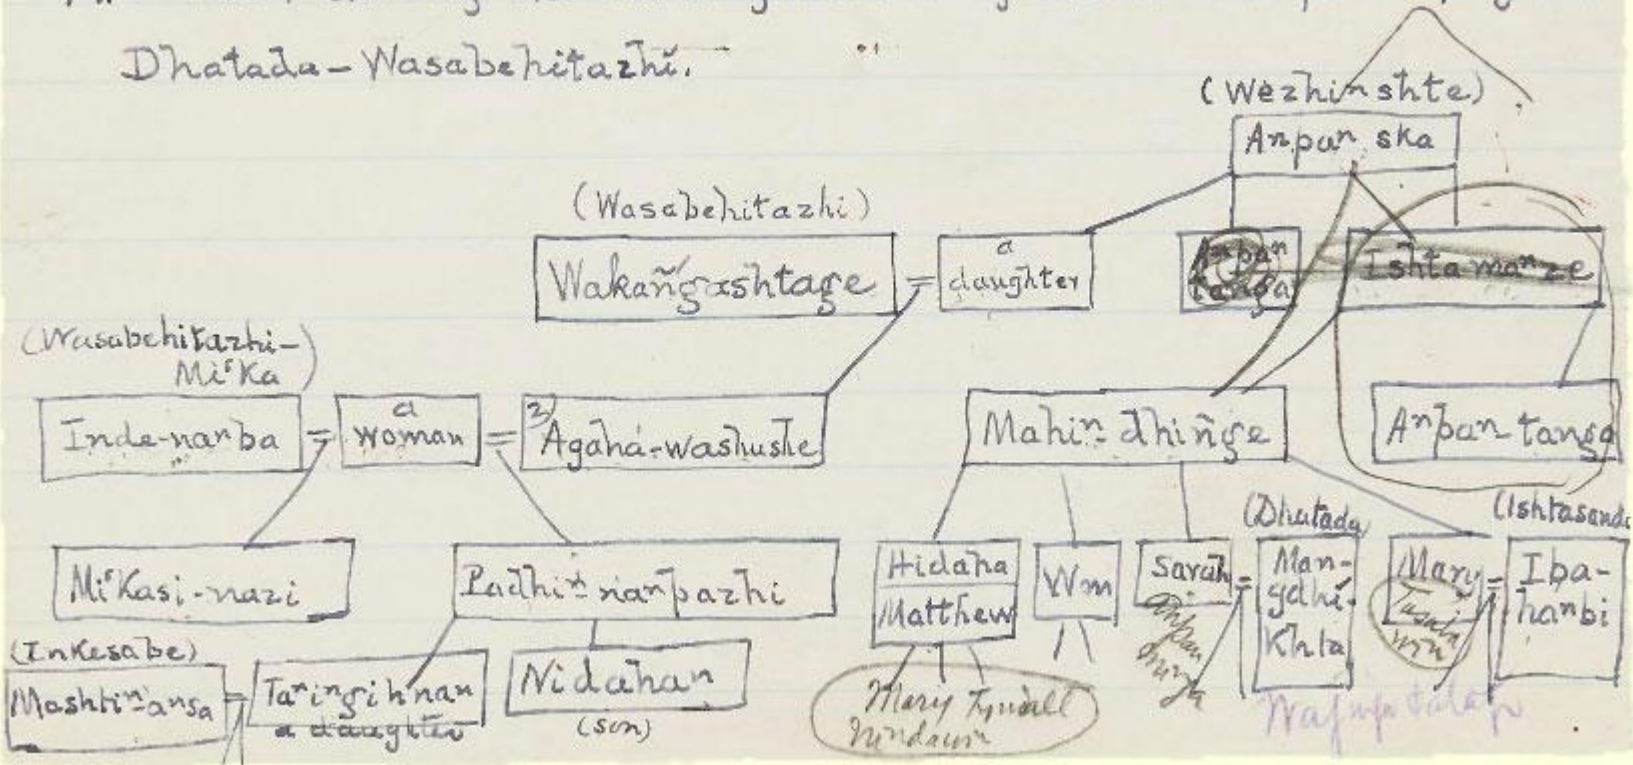 Dhatada-Wasabehitazhi.
(Wezhinshte)
Aⁿpaⁿ ska
(Wasabehitazhi)
Wakañgashtage = a daughter
Aⁿpaⁿ tanga
Ishta maⁿze
(Wasabehitazhi-
Miʻka)
Inde-naⁿba = a woman = 2) Agaha-washushe
Mahiⁿ-dhiñge
Aⁿpaⁿ-tanga
(Dhatada)
(Ishtasanda
Miʻkasi-nazi
Padhiⁿ-naⁿpazhi
Hidaha
Matthew
Wm
Sarah = Maⁿ-gdhi-Khta
Mary = Iba-haⁿbi
(Inkesabe)
Mashtiⁿ-aⁿsa = Taⁿiⁿgihnaⁿ
a daughter
Nidahaⁿ
(son)
Mary Tyndall